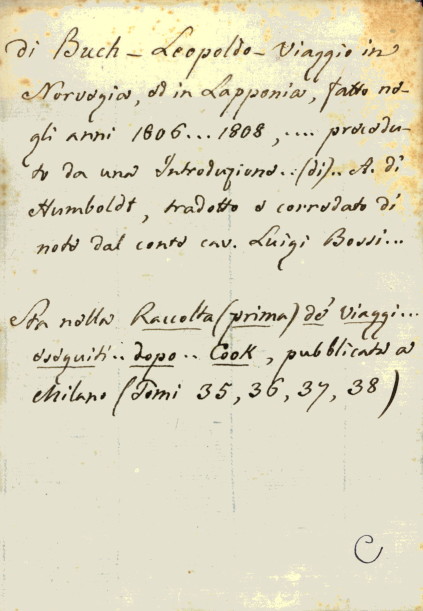 di Buch - Leopoldo - Viaggio in
Norvegia, ed in Lapponia, fatto ne-
gli anni 1806... 1808, .... precedu-
to da una Introduzione.. (di).. A. di
Humboldt, tradotto e corredato di
note dal conte cav. Luigi Bossi...
Sta nella Raccolta (prima) de' viaggi...
eseguiti.. dopo.. Cook, pubblicata a
Milano (Tomi 35, 36, 37, 38)
C